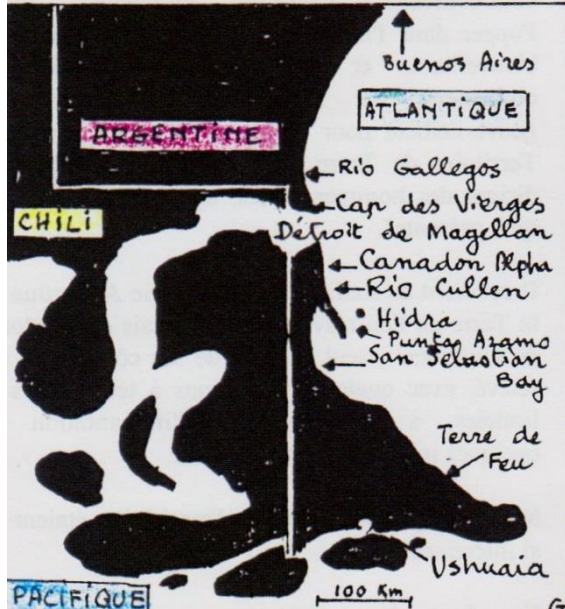 Buenos Aires
ATLANTIQUE
ARGENTINE
Rio Gallegos
CHILI
Cap des Vierges
Détroit de Magellan
Canadon Alpha
Rio Cullen
Hidra
Punta Azamo
San Sebastian
Bay
Terre de
Feu
Ushuaia
PACIFIQUE
100 Km